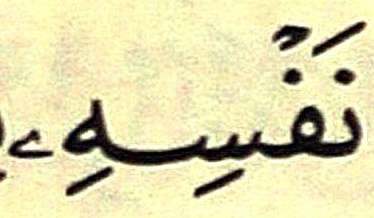 نَفْسِهِۦ